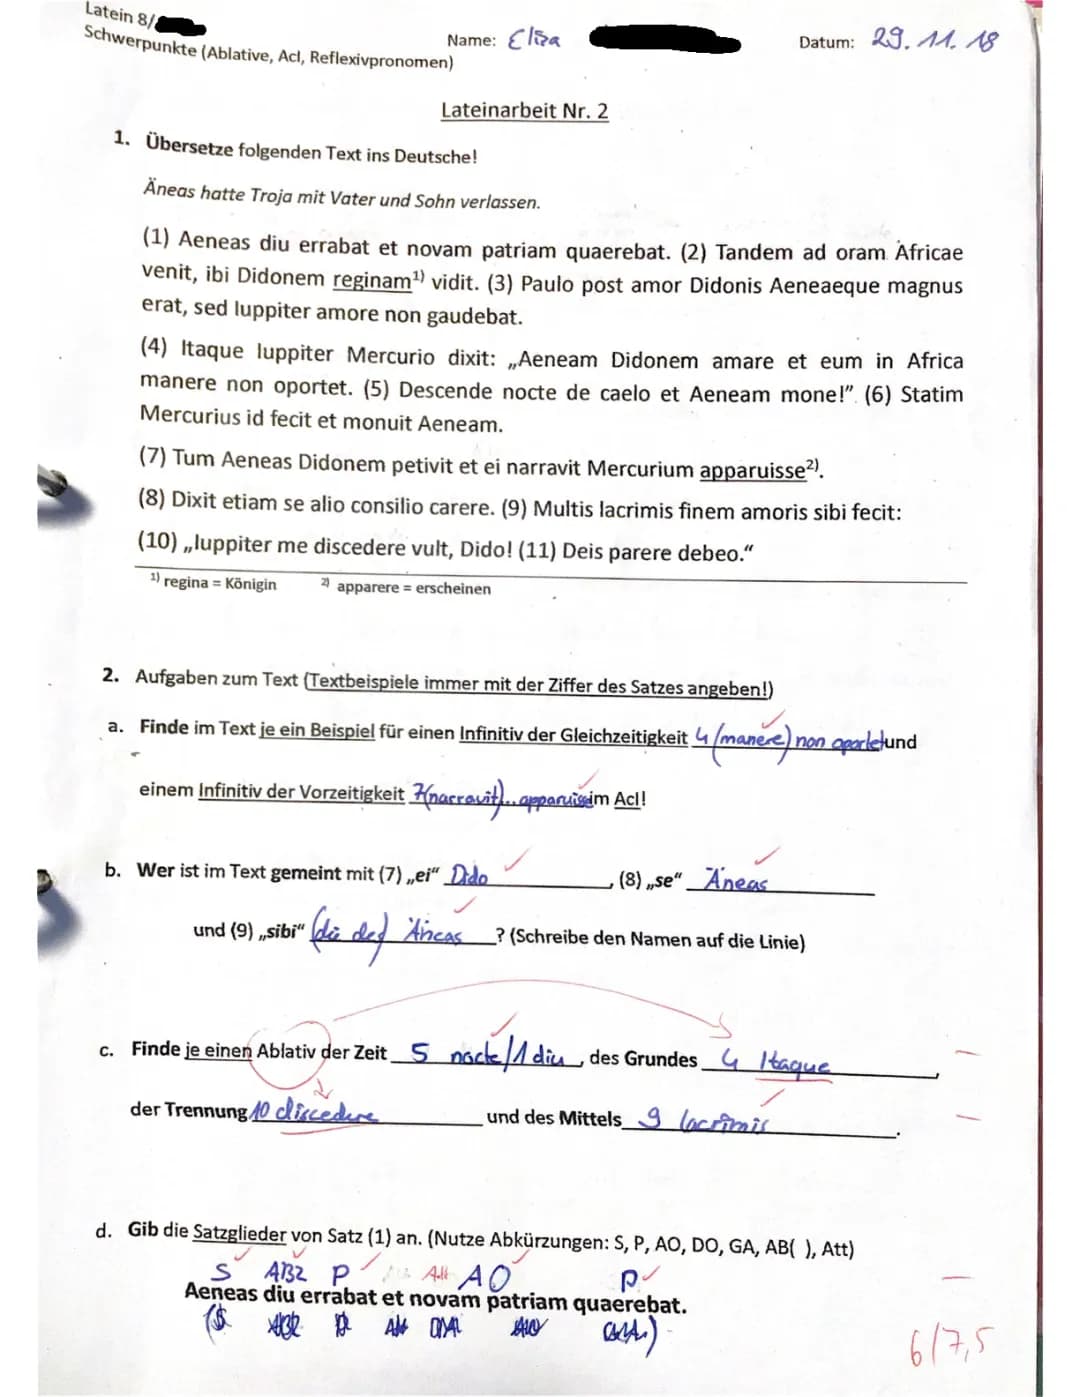 Latein 8/
Schwerpunkte (Ablative, AcI, Reflexivpronomen)
Name: Eliza
Datum: 29.11.18
Lateinarbeit Nr. 2
1. Übersetze folgenden Text ins Deutsche!
Äneas hatte Troja mit Vater und Sohn verlassen.
(1) Aeneas diu errabat et novam patriam quaerebat. (2) Tandem ad oram Africae
venit, ibi Didonem reginam¹⁾ vidit. (3) Paulo post amor Didonis Aeneaeque magnus
erat, sed Iuppiter amore non gaudebat.
(4) Itaque Iuppiter Mercurio dixit: „Aeneam Didonem amare et eum in Africa
manere non oportet. (5) Descende nocte de caelo et Aeneam mone!“ (6) Statim
Mercurius id fecit et monuit Aeneam.
(7) Tum Aeneas Didonem petivit et ei narravit Mercurium apparuisse²⁾.
(8) Dixit etiam se alio consilio carere. (9) Multis lacrimis finem amoris sibi fecit:
(10) „Iuppiter me discedere vult, Dido! (11) Deis parere debeo.“
¹⁾ regina = Königin ²⁾ apparere = erscheinen
2. Aufgaben zum Text (Textbeispiele immer mit der Ziffer des Satzes angeben!)
a. Finde im Text je ein Beispiel für einen Infinitiv der Gleichzeitigkeit 4 (manere) non oportet und
einem Infinitiv der Vorzeitigkeit 7 (narravit)... apparuisse im AcI!
b. Wer ist im Text gemeint mit (7) „ei“ Dido, (8) „se“ Äneas
und (9) „sibi“ Äneas ? (Schreibe den Namen auf die Linie)
c. Finde je einen Ablativ der Zeit 5 nocte/1 diu, des Grundes 4 Itaque,
der Trennung 10 discedere und des Mittels 9 lacrimis.
d. Gib die Satzglieder von Satz (1) an. (Nutze Abkürzungen: S, P, AO, DO, GA, AB( ), Att)
S ABZ P Att AO P
Aeneas diu errabat et novam patriam quaerebat.
6/7,5